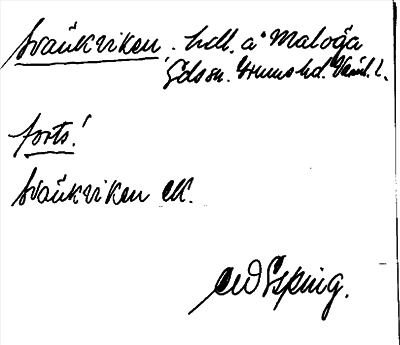 Svaükviken, hdl. a° Maloğa
Gds sn. Grums hd. Värml. l.
forts!
Svaükviken M.
CWEsping.